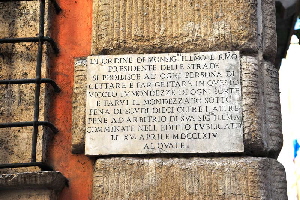 D'ORDINE DI MONSIG ILLMO E RMO
PRESIDENTE DELLE STRADE
SI PROIBISCE AD OGNI PERSONA DI
GETTARE E FAR GETTARE IN QUESTO
VICOLO IMMONDEZZE D'OGNI SORTE
E FARVI IL MONDEZZARO SOTTO
PENA DI SCUDI DIECI OLTRE L'ALTRE
PENE AD ARBITRIO DI SUA SIG ILLMA
COMMINATE NELL EDITTO PUBLICATO
LI XVI APRILE MDCCLXIV
AL QUALE